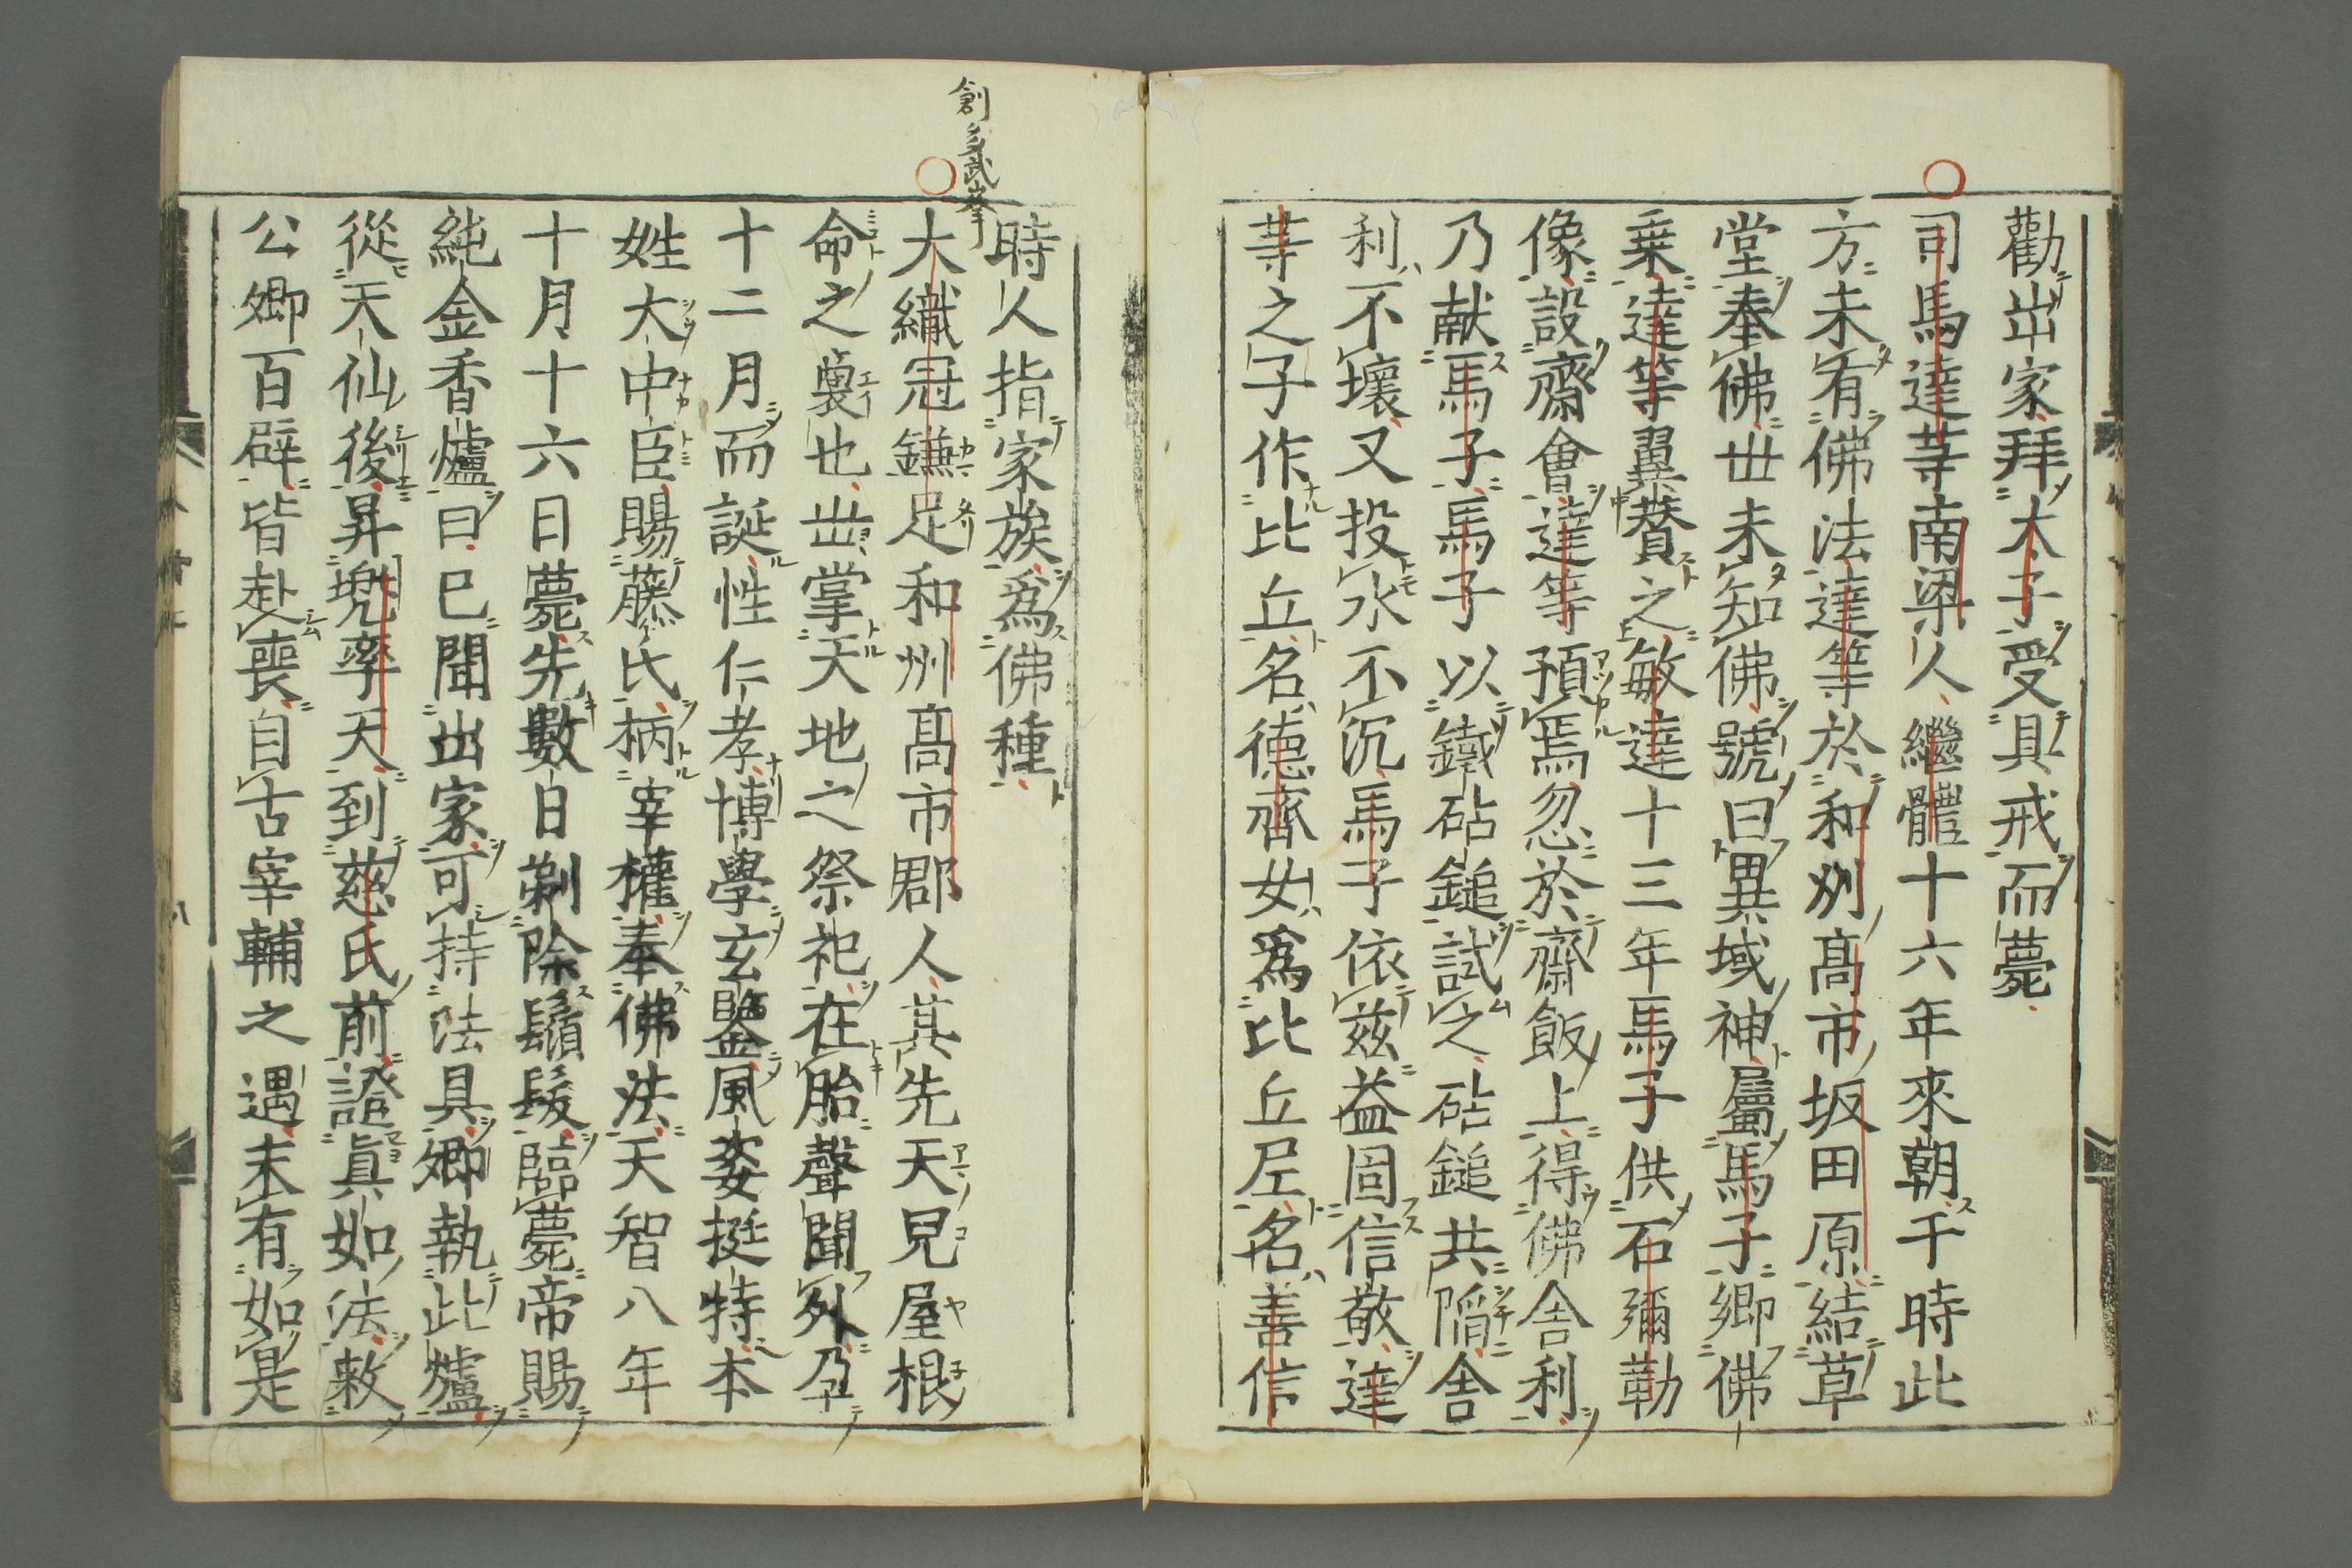 勸出家拜太子受具戒而薨
司馬達等南梁人繼體十六年來朝于時此
方未有佛法達等於和州髙市坂田原結草
堂奉佛世未知佛號曰異域神屬馬子鄉佛
乗達等翼賛之敏達十三年馬子供石彌勒
像設齋會達等預焉忽於齋飯上得佛舎利
乃献馬子馬子以鐵砧鎚試之砧鎚共陷舎
利不壞又投水不沉馬子依兹益固信敬達
等之子作比丘名德齊女爲比丘尼名善信
創多武峯
時人指家族爲佛種
大織冠鎌足和州髙市郡人其先天兒屋根
命之裔也世掌天地之祭祀在胎聲聞外孕
十二月而誕性仁孝博學玄鑒風姿挺特本
姓大中臣賜藤氏柄宰權奉佛法天智八年
十月十六日薨先數日剃除鬚髮臨薨帝賜
純金香爐曰已聞出家可持法具卿執此爐
從天仙後昇兠率天到慈氏前證眞如法敕
公卿百辟皆赴喪自古宰輔之遇未有如是